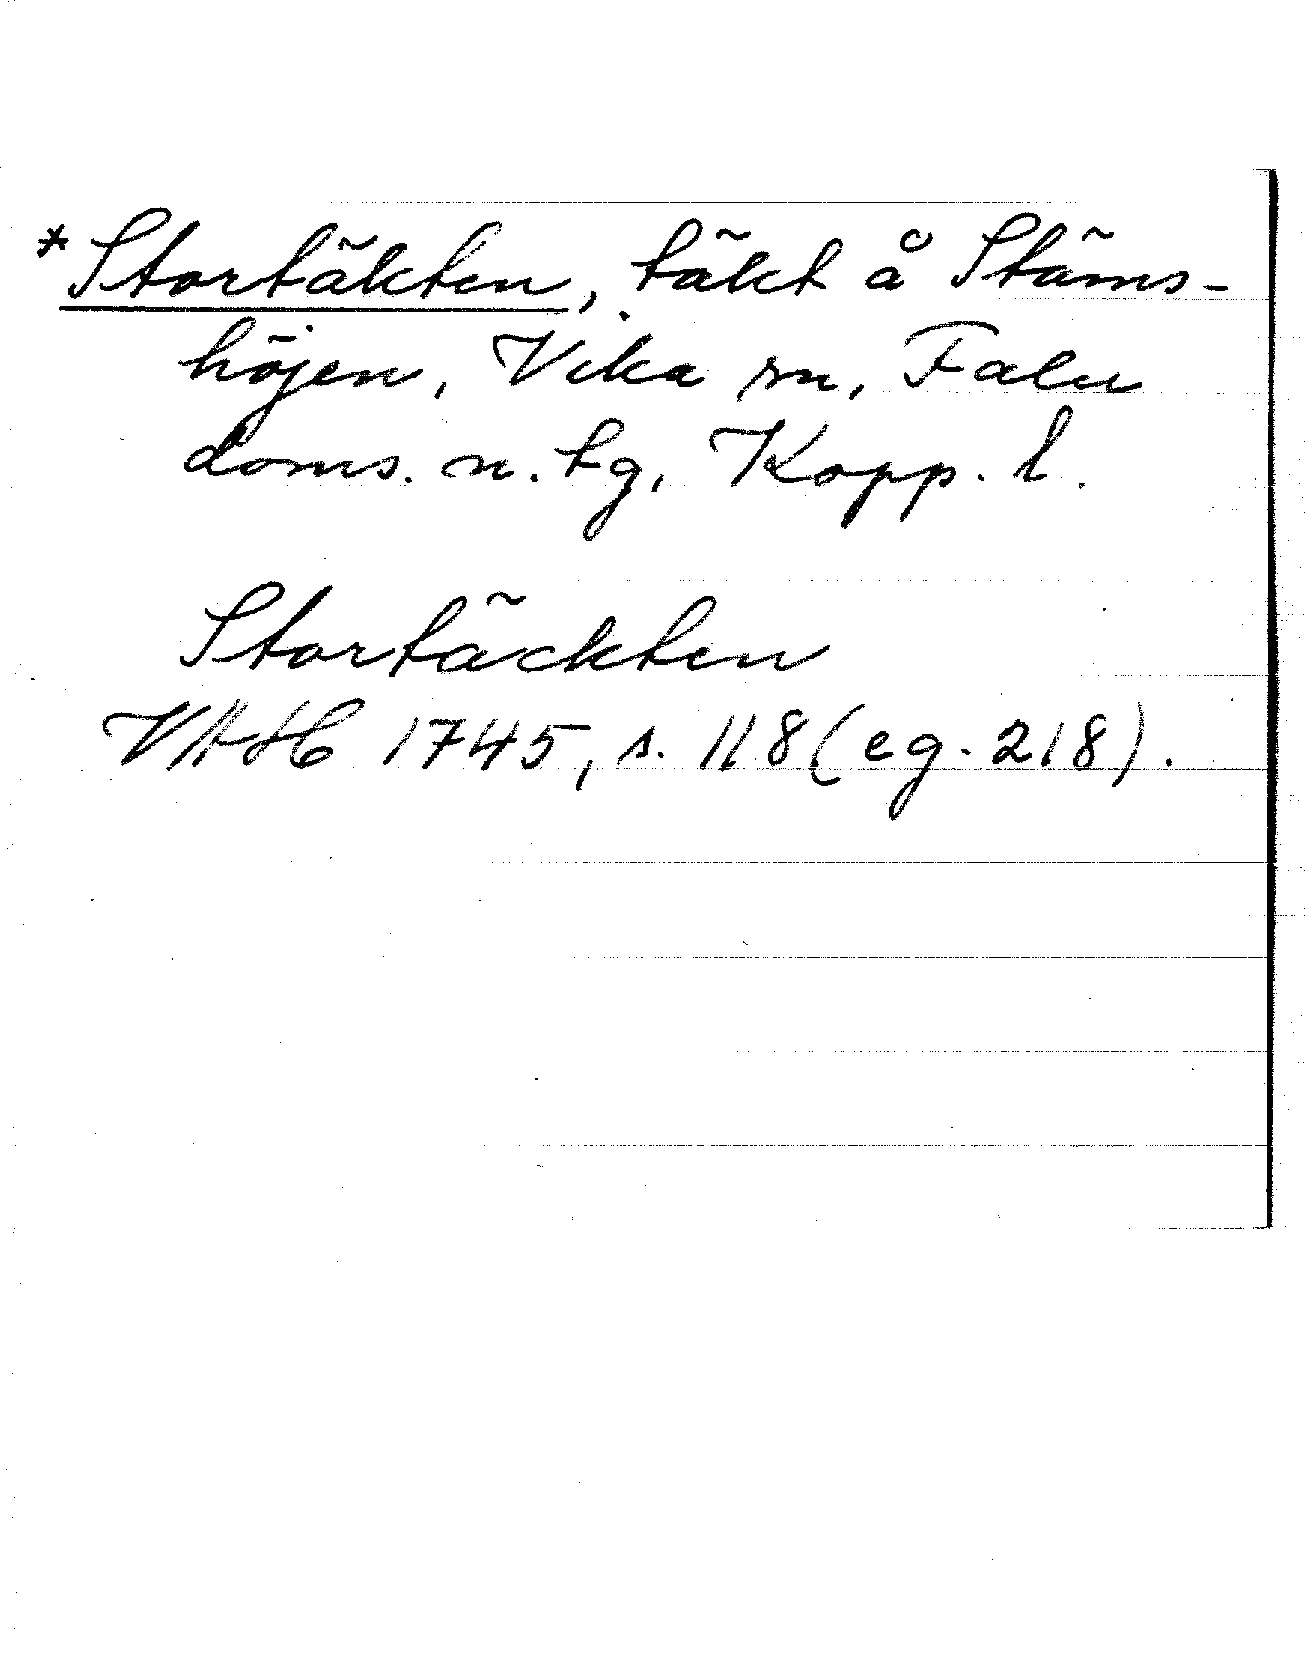 *Stortäkten, täkt å Stäms-
höjen, Vika sn, Falu
doms. n. tg, Kopp. l.
Stortäckten
VAH 1745, s. 118 (eg. 218).